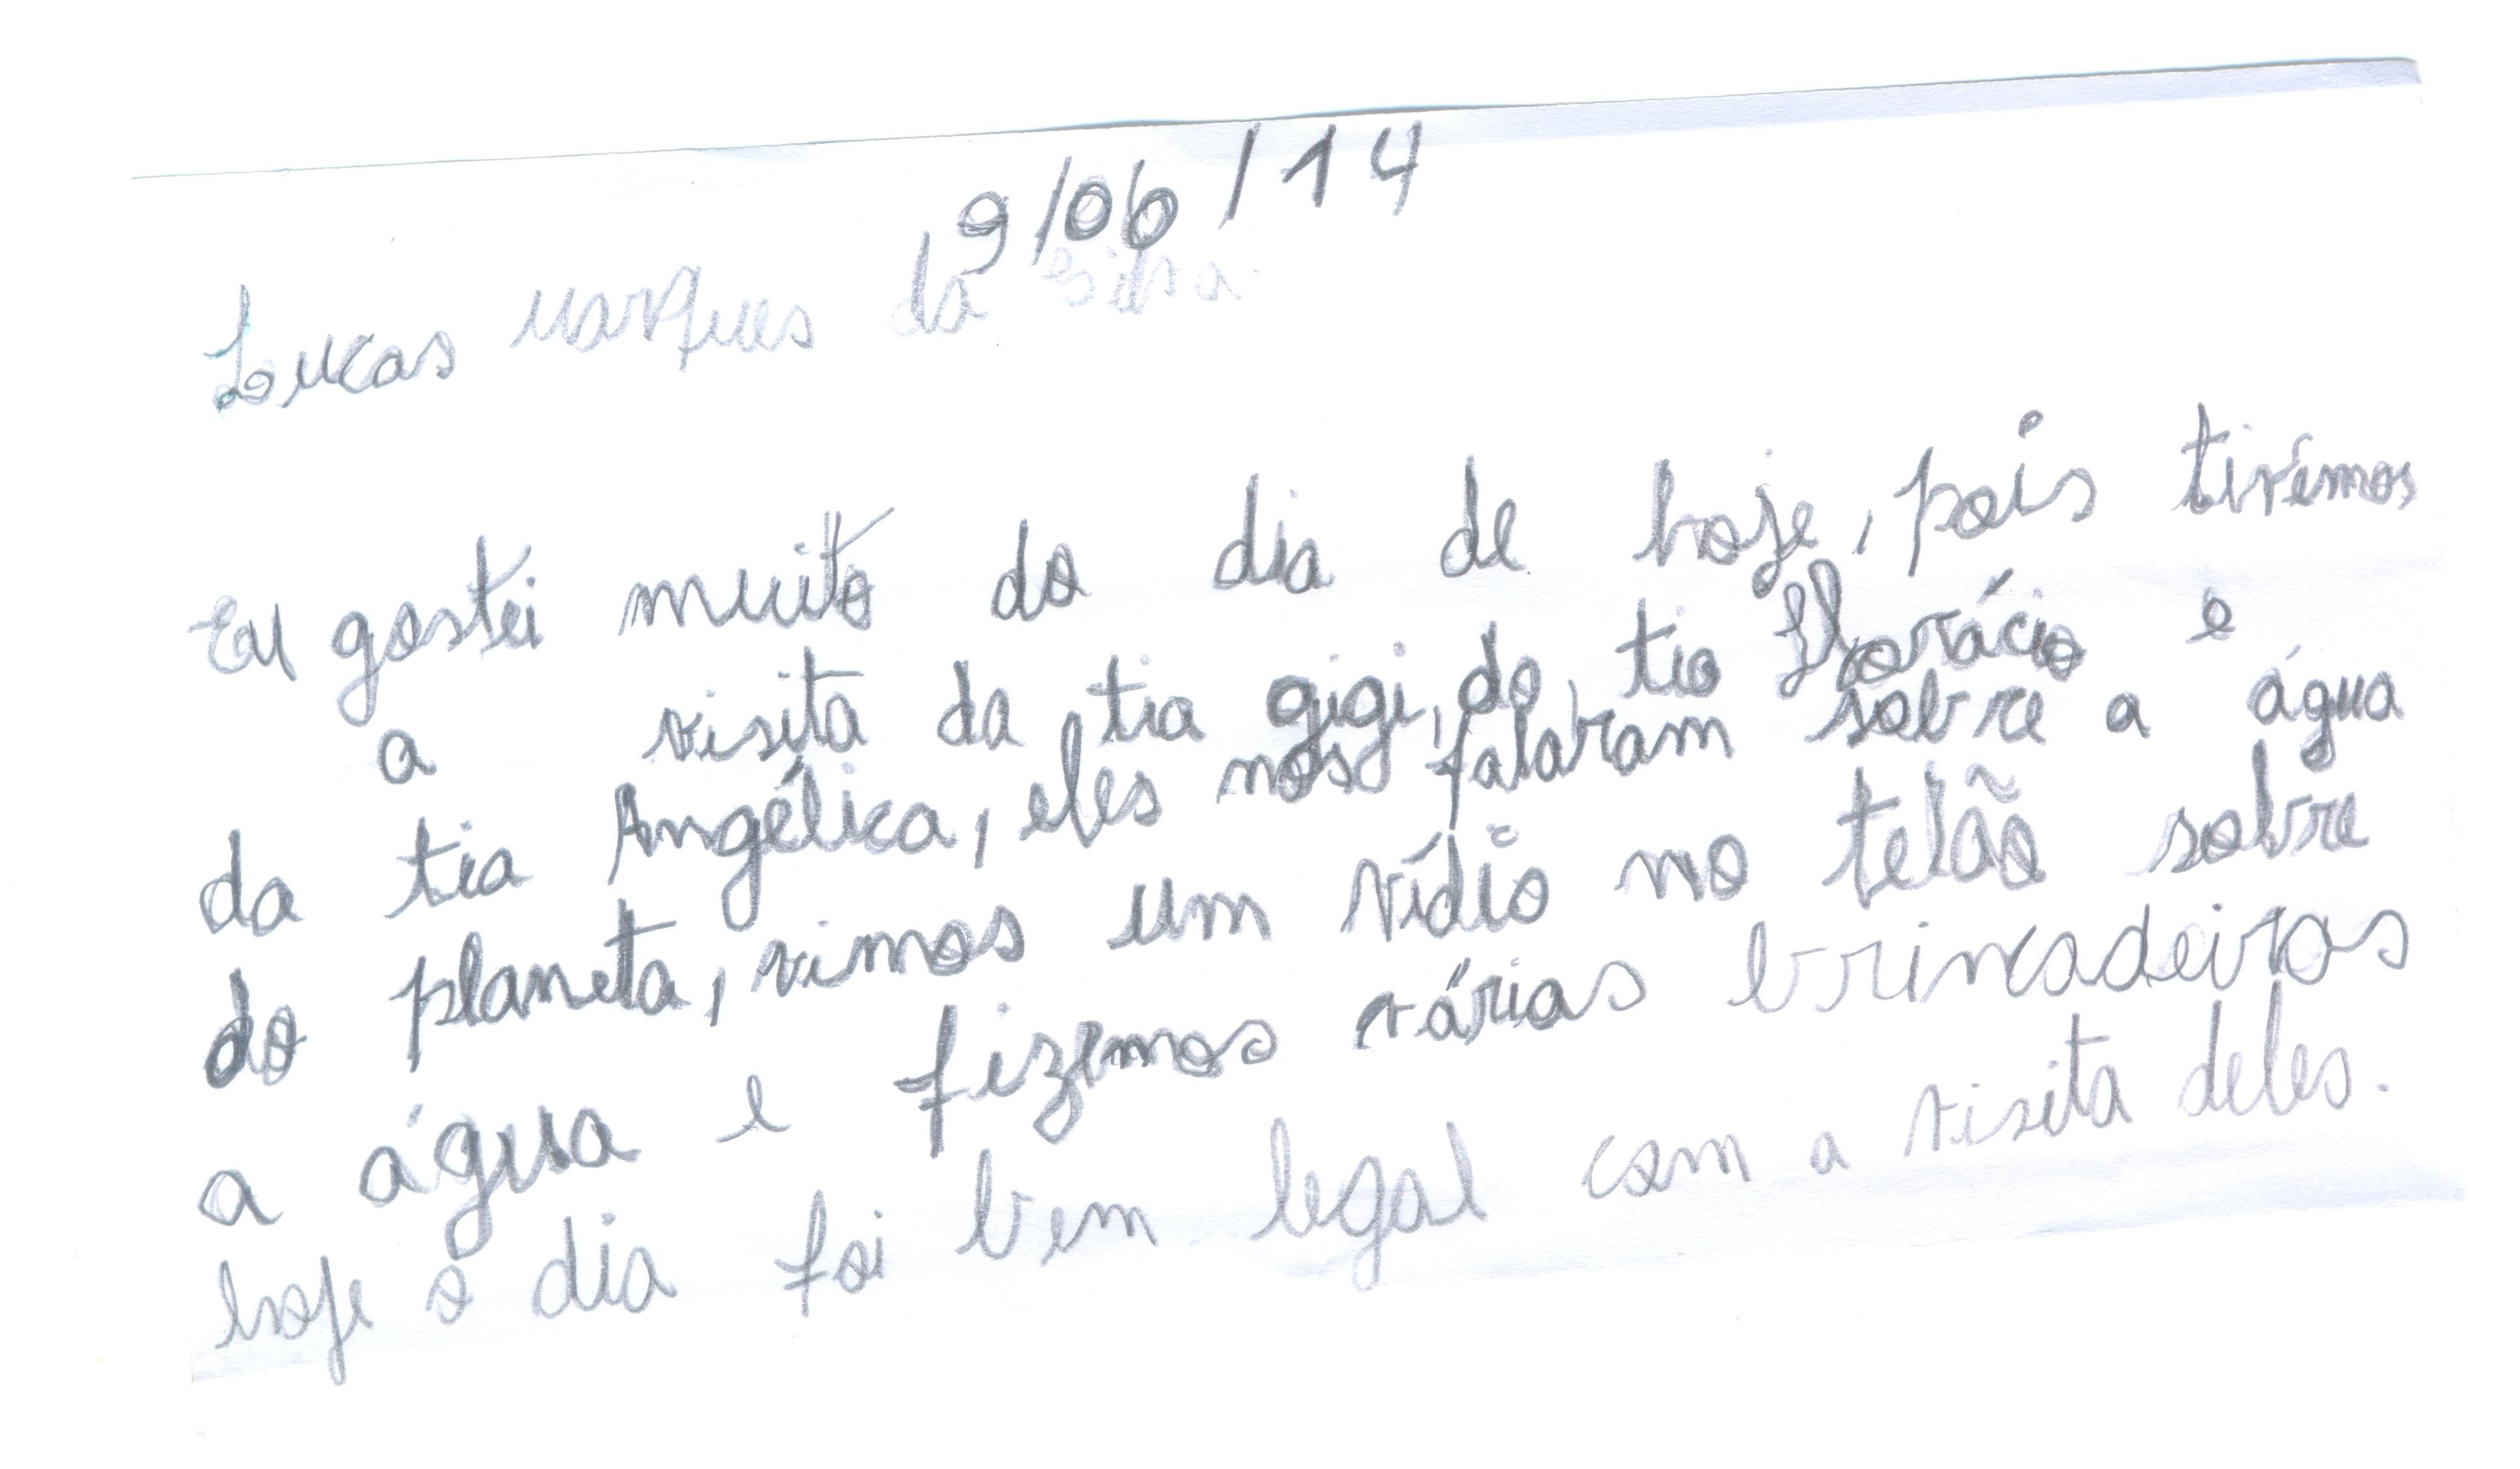 9/06/14
Lucas Marques da Silva
Eu gostei muito do dia de hoje, pois tivémos
a visita da tia gigi, do tio Horácio e
da tia Angélica, eles nos falaram sobre a água
do planeta, vimos um vídio no telão sobre
a água e fizemos várias brincadeiras
hoje o dia foi bem legal com a visita deles.